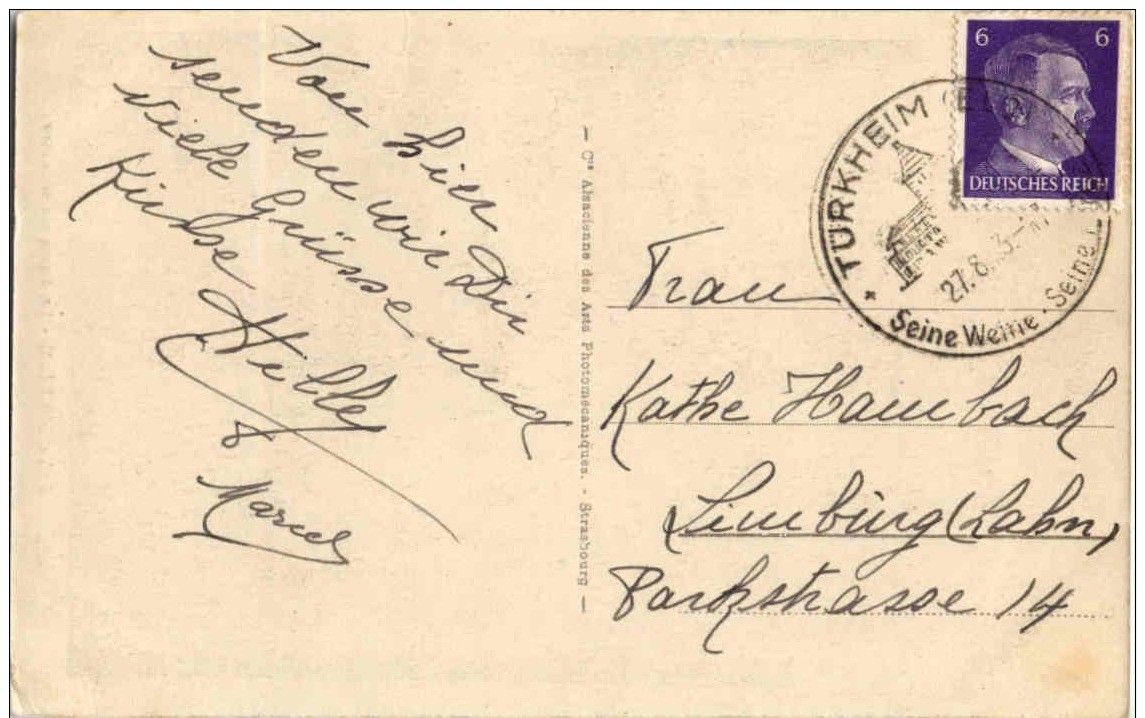 Von hier
senden wir Dir
viele Grüsse und
Küsse
Willy
Marcel
— Cie Alsacienne des Arts Photomécaniques. - Strasbourg —
6 6
DEUTSCHES REICH
* TÜRKHEIM
27.8. 3.
Seine Weine · Seine
Frau
Käthe Hambach
Limburg (Lahn)
Parkstrasse 14